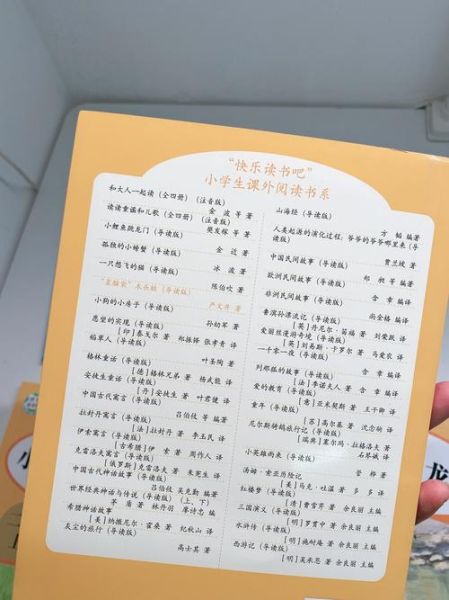 “快乐读书吧”
小学生课外阅读书系
和大人一起读（全四册）（注音版）
金波 等著
读读童谣和儿歌（全四册）（注音版）
樊发稼 等著
小鲤鱼跳龙门（导读版）
金近 著
孤独的小螃蟹（导读版）
冰波 著
一只想飞的猫（导读版）
陈伯吹 著
“歪脑袋”木头桩（导读版）
严文井 著
小狗的小房子（导读版）
孙幼军 著
愿望的实现（导读版）
［印］泰戈尔 著 郑振铎 张孝青 译
稻草人（导读版）
叶圣陶 著
格林童话（导读版）
［德］格林兄弟 著 杨武能 译
安徒生童话（导读版）
［丹］安徒生 著 叶君健 译
中国古代寓言（导读版）
吕伯攸 等 编著
拉封丹寓言（导读版）
［法］拉封丹 著 李玉民 译
伊索寓言（导读版）
［古希腊］伊索 著 周作人 译
克雷洛夫寓言（导读版）
［俄罗斯］克雷洛夫 著 朱宪生 译
中国古代神话故事（导读版）
吕伯攸 吴克勤 编著
世界经典神话与传说（导读版）（上、下）
茅盾 著 林丹羽 覃诗忠 编
希腊神话故事
［美］纳撒尼尔·霍桑 著 纪秋山 译
灰尘的旅行（导读版）
高士其 著
山海经（导读版）
方韬 编著
人类起源的演化过程：爷爷的爷爷哪里来（导读版）
贾兰坡 著
中国民间故事（导读版）
郑昶 等 编著
欧洲民间故事（导读版）
含章 编译
非洲民间故事（导读版）
尚金格 编译
鲁滨孙漂流记（导读版）
［英］丹尼尔·笛福 著 刘荣跃 译
爱丽丝漫游奇境（导读版）
［英］刘易斯·卡罗尔 著 马爱农 译
一千零一夜（导读版）
含章 编译
列那狐的故事（导读版）
［法］季诺夫人 著 含章 编译
爱的教育（导读版）
［意］亚米契斯 著 王干卿 译
童年（导读版）
［苏］高尔基 著 沈念驹 译
尼尔斯骑鹅旅行记（导读版）
［瑞典］塞尔玛·拉格洛夫 著 石琴娥 译
小英雄雨来（导读版）
管桦 著
汤姆·索亚历险记
［美］马克·吐温 著 多多 译
红楼梦（导读版）
［清］曹雪芹 著 余良丽 主编
三国演义（导读版）
［明］罗贯中 著 余良丽 主编
水浒传（导读版）
［明］施耐庵 著 余良丽 主编
西游记（导读版）
［明］吴承恩 著 余良丽 主编
小
龙